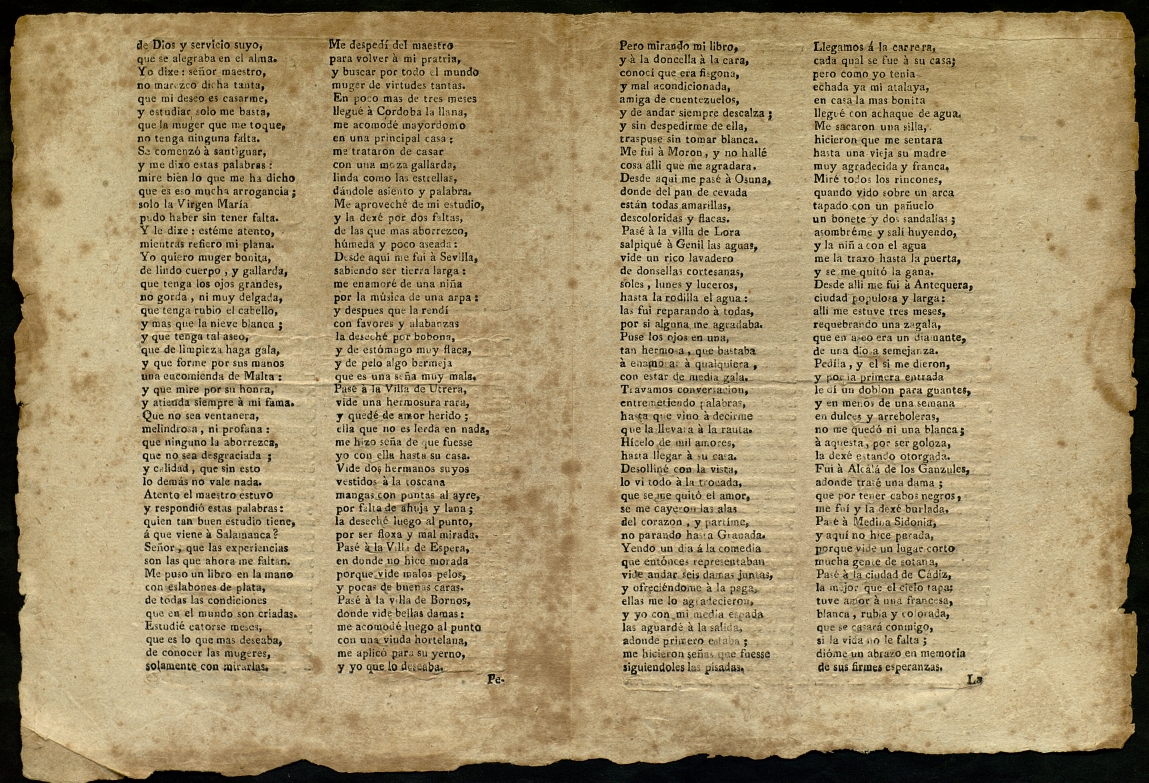 de Dios y servicio suyo,
que se alegraba en el alma.
Yo dixe: señor maestro,
no merezco dicha tanta,
que mi deseo es casarme,
y estudiar solo me basta,
que la muger que me toque,
no tenga ninguna falta.
Se comenzó à santiguar,
y me dixo estas palabras:
mire bien lo que me ha dicho
que es eso mucha arrogancia;
solo la Virgen María
pudo haber sin tener falta.
Y le dixe: estéme atento,
mientras refiero mi plana.
Yo quiero muger bonita,
de lindo cuerpo, y gallarda,
que tenga los ojos grandes,
no gorda, ni muy delgada,
que tenga rubio el cabello,
y mas que la nieve blanca;
y que tenga tal aseo,
que de limpieza haga gala,
y que forme por sus manos
una encomienda de Malta:
y que mire por su honra,
y atienda siempre à mi fama.
Que no sea ventanera,
melindrosa, ni profana:
que ninguno la aborrezca,
que no sea desgraciada;
y calidad, que sin esto
lo demás no vale nada.
Atento el maestro estuvo
y respondió estas palabras:
quien tan buen estudio tiene,
á que viene à Salamanca?
Señor, que las experiencias
son las que ahora me faltan.
Me puso un libro en la mano
con eslabones de plata,
de todas las condiciones
que en el mundo son criadas.
Estudié catorse meses,
que es lo que mas deseaba,
de conocer las mugeres,
solamente con mirarlas.
Me despedí del maestro
para volver à mi pratria,
y buscar por todo el mundo
muger de virtudes tantas.
En poco mas de tres meses
llegué à Cordoba la llana,
me acomodé mayordomo
en una principal casa:
me trataron de casar
con una moza gallarda,
linda como las estrellas,
dándole asiento y palabra.
Me aproveché de mi estudio,
y la dexé por dos faltas,
de las que mas aborrezco,
húmeda y poco aseada:
Desde aqui me fui à Sevilla,
sabiendo ser tierra larga:
me enamoré de una niña
por la música de una arpa:
y despues que la rendí
con favores y alabanzas
la deseché por bobona,
y de estómago muy flaca,
y de pelo algo bermeja
que es una seña muy mala.
Pasé à la Villa de Utrera,
vide una hermosura rara,
y quedé de amor herido;
ella que no es lerda en nada,
me hizo seña de que fuese
yo con ella hasta su casa.
Vide dos hermanos suyos
vestidos à la toscana
mangas con puntas al ayre,
por falta de ahuja y lana;
la deseché luego al punto,
por ser floxa y mal mirada.
Pasé à la Villa de Espera,
en donde no hice morada
porque vide malos pelos,
y pocas de buenas caras.
Pasé à la villa de Bornos,
donde vide bellas damas:
me acomodé luego al punto
con una viuda hortelana,
me aplicó para su yerno,
y yo que lo deseaba.
Pe-
Pero mirando mi libro,
y à la doncella à la cara,
conocí que era fisgona,
y mal acondicionada,
amiga de cuentezuelos,
y de andar siempre descalza;
y sin despedirme de ella,
traspuse sin tomar blanca.
Me fui à Moron, y no hallé
cosa alli que me agradara.
Desde aqui me pasé à Osuna,
donde del pan de cevada
están todas amarillas,
descoloridas y flacas.
Pasé à la villa de Lora
salpiqué à Genil las aguas,
vide un rico lavadero
de donsellas cortesanas,
soles, lunes y luceros,
hasta la rodilla el agua:
las fui reparando à todas,
por si alguna me agradaba.
Puse los ojos en una,
tan hermosa, que bastaba
à enamorar à qualquiera,
con estar de media gala.
Travamos conversacion,
entremetiendo palabras,
hasta que vino à decirme
que la llevara à la rauta.
Hícelo de mil amores,
hasta llegar à su casa.
Desolliné con la vista,
lo vi todo à la trocada,
que se me quitó el amor,
se me cayeron las alas
del corazon, y partíme,
no parando hasta Granada.
Yendo un dia á la comedia
que entónces representaban
vide andar seis damas juntas,
y ofreciéndome à la paga,
ellas me lo agradecieron,
y yo con mi media espada
las aguardé à la salida,
adonde primero estaba;
me hicieron señas que fuesse
siguiendoles las pisadas.
Llegamos á la carrera,
cada qual se fue à su casa;
pero como yo tenia
echada ya mi atalaya,
en casa la mas bonita
llegué con achaque de agua.
Me sacaron una silla,
hicieron que me sentara
hasta una vieja su madre
muy agradecida y franca.
Miré todos los rincones,
quando vido sobre un arca
tapado con un pañuelo
un bonete y dos sandalias;
asombréme y salí huyendo,
y la niña con el agua
me la traxo hasta la puerta,
y se me quitó la gana.
Desde alli me fui à Antequera,
ciudad populosa y larga:
alli me estuve tres meses,
requebrando una zagala,
que en aseo era un diamante,
de una diosa semejanza.
Pedíla, y el si me dieron,
y por la primera entrada
le dí un doblon para guantes,
y en menos de una semana
en dulces y arreboleras,
no me quedó ni una blanca;
à aquesta, por ser goloza,
la dexé estando otorgada.
Fui à Alcalá de los Ganzules,
adonde traté una dama;
que por tener cabos negros,
me fui y la dexé burlada.
Pasé à Medina Sidonia,
y aqui no hice parada,
porque vide un lugar corto
mucha gente de sotana,
Pasé à la ciudad de Cádiz,
la mejor que el cielo tapa:
tuve amor à una francesa,
blanca, rubia y colorada,
que se casará conmigo,
si la vida no le falta;
dióme un abrazo en memoria
de sus firmes esperanzas.
La